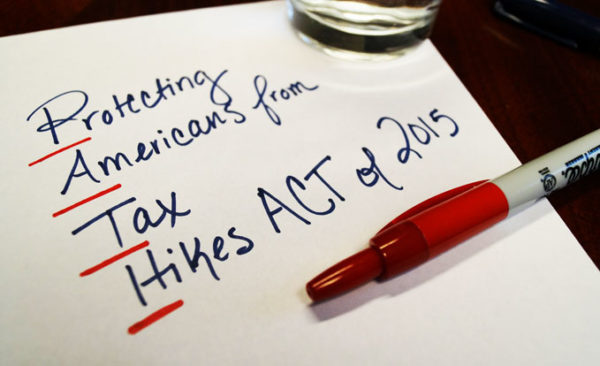 Protecting
Americans from
Tax
Hikes ACT of 2015